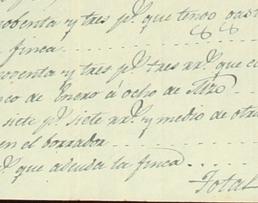 y tres p.s que tengo
finca
y tres p.s tres rr.s que
de Enero á ocho de Mzo
siete p.s siete rr.s y medio de otra
en el borrador
que adeuda la finca
Total